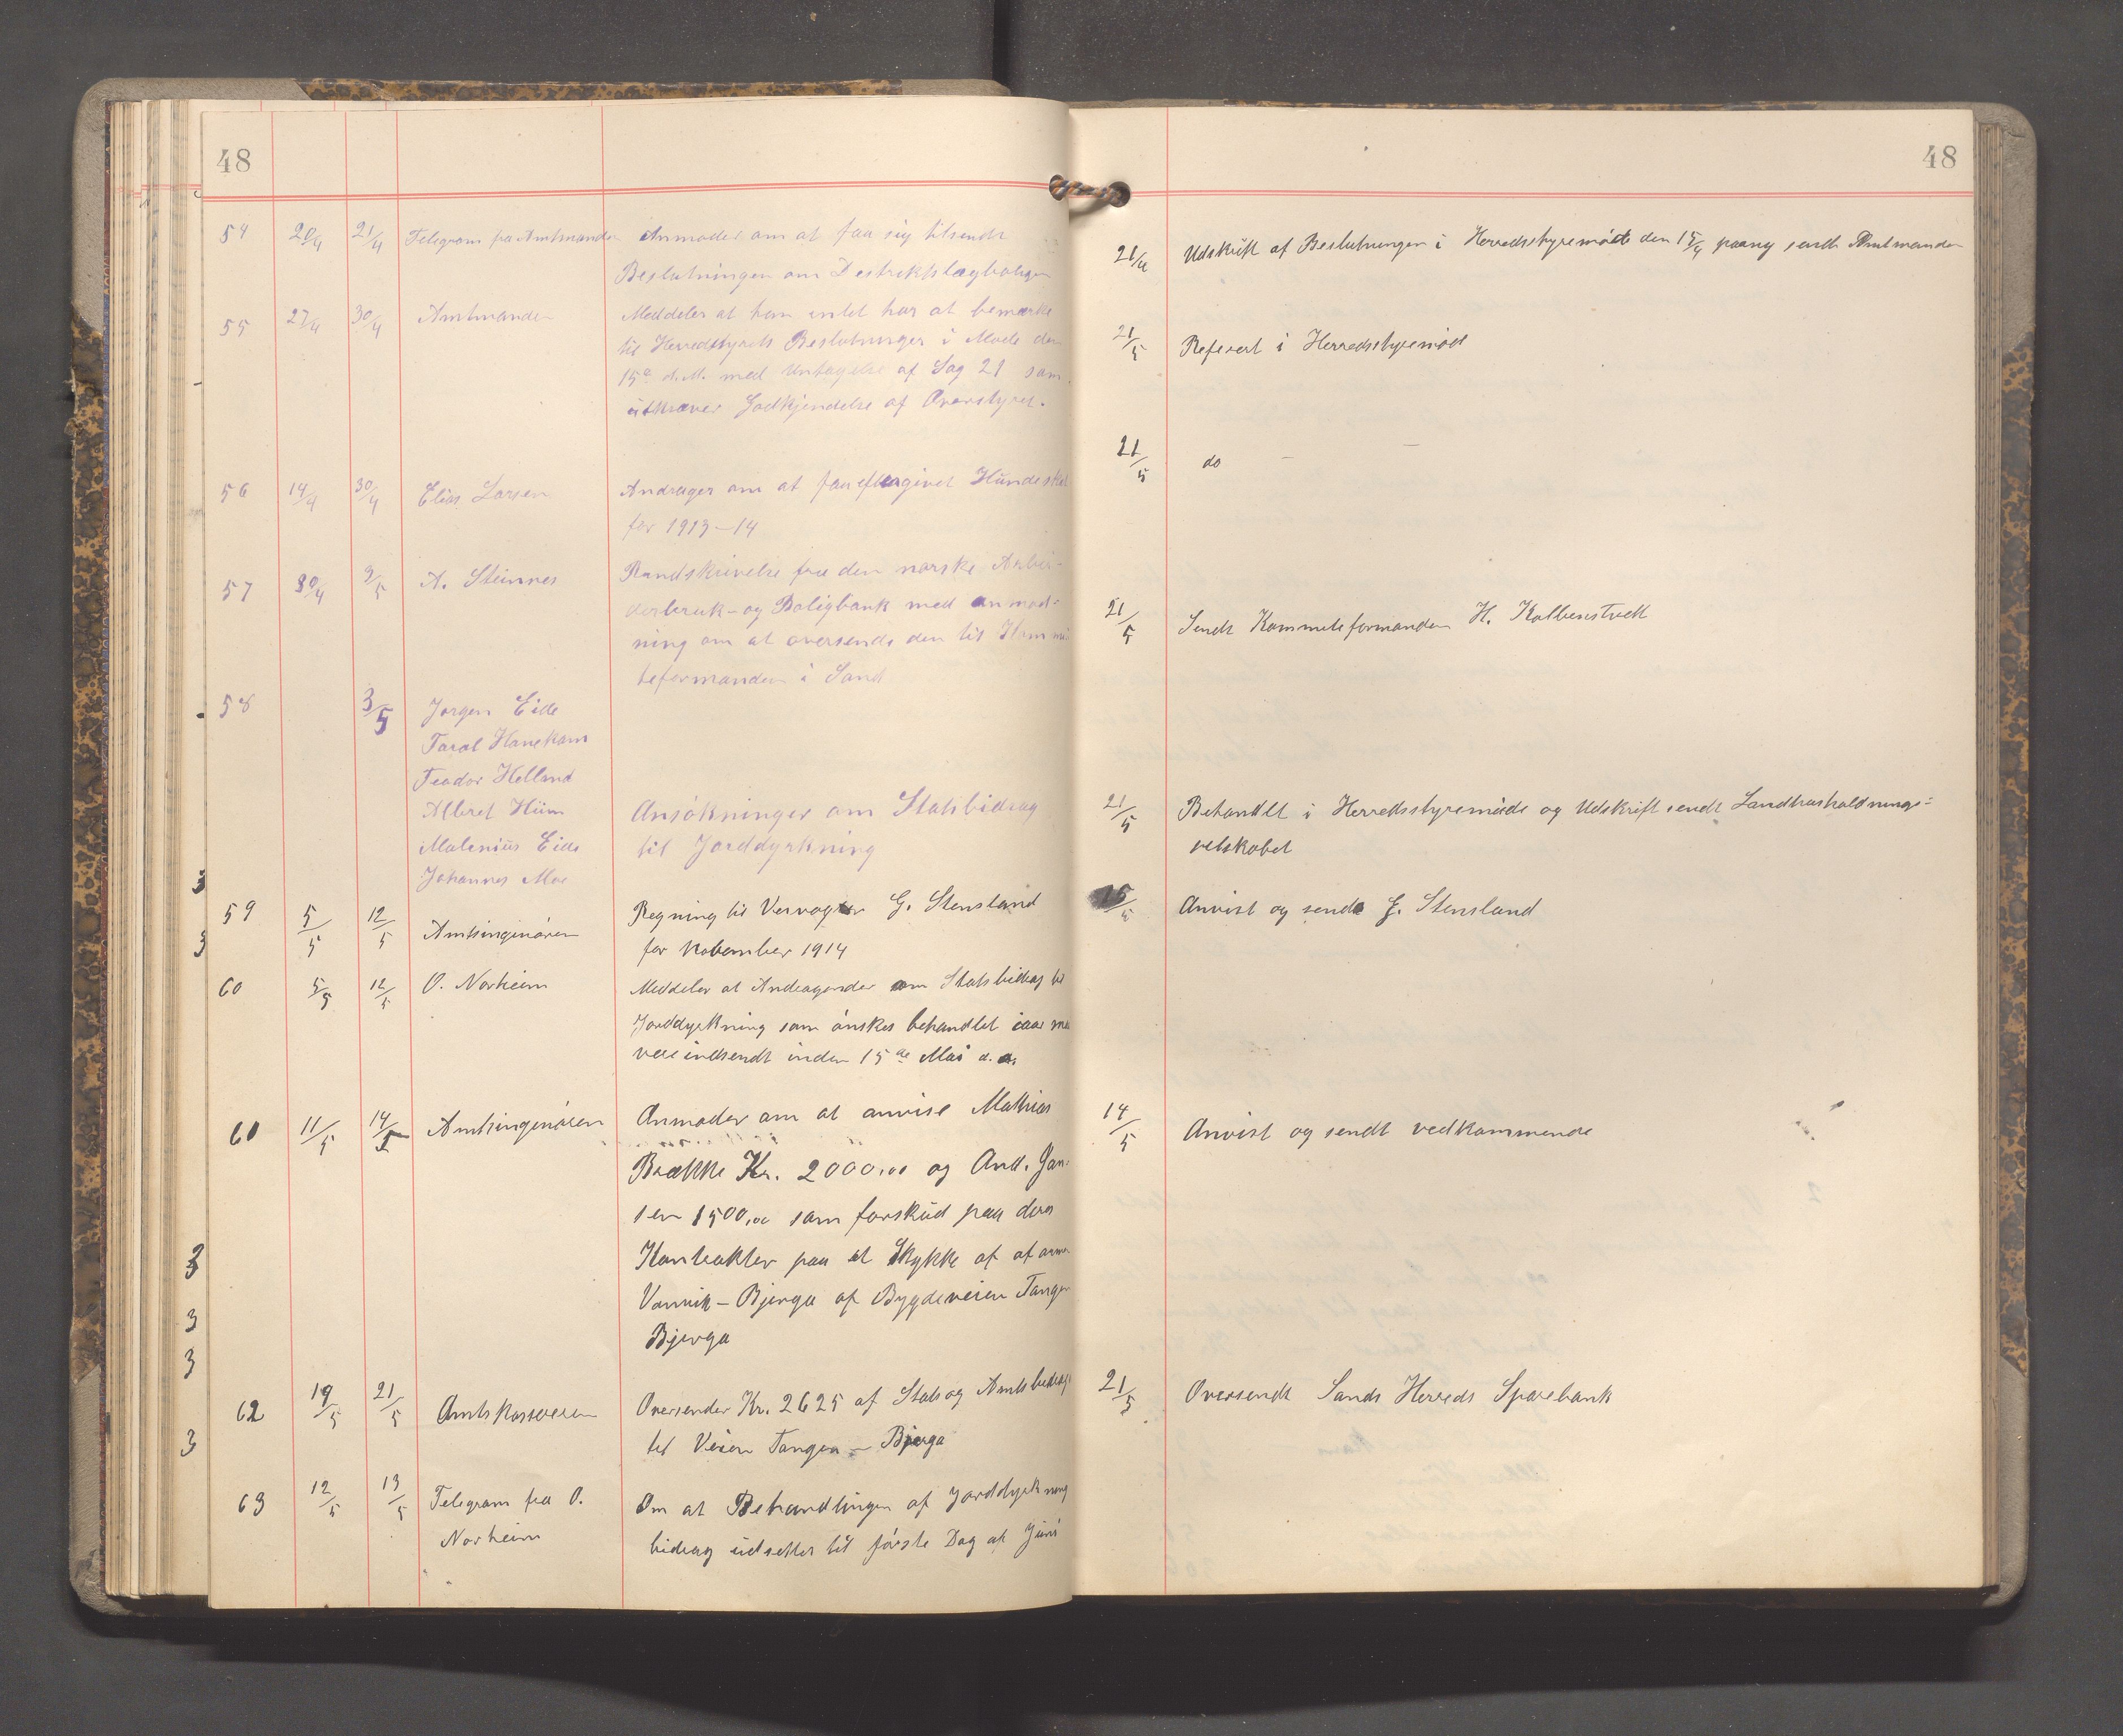 48
54 20/4 21/4 Telegram fra Amtmanden Anmoder om at faa sig tilsendt
Beslutningen om Destriktslægboligen
55 27/4 30/4 Amtmanden Meddeler at han intet har at bemærke
til Herredstyrets Beslutninger i Møde den
15de d.M. med Untagelse af Sag 21 som
utkræver Godkjendelse af Overstyret.
56 14/4 30/4 Elias Larsen Andrager om at faa eftergivet Hundeskat
for 1913-14
57 30/4 2/5 A. Steinnes Rundskrivelse fra den norske Arbei-
derbruk- og Boligbank med anmod-
ning om at oversende den til Kommi
teformanden i Sand
58 3/5 Jørgen Eide
Taral Hanekam
Teodor Helland
Albret Hiim
Maleniüs Eide
Johannes Moe
Ansøkninger om Statsbidrag
til Jorddyrkning
59 5/5 12/5 Amtsingeniøren Regning til Veivogter G. Stensland
for November 1914
60 5/5 12/5 O. Norheim Meddeler at Andragender om Statsbidrag til
Jorddyrkning som ønskes behandlet iaar maa
være indsendt inden 15de Mai d.a.
61 11/5 14/5 Amtsingeniøren Anmoder om at anvise Mathias
Brække Kr. 2000,00 og And. Jan-
sen 1500,00 som forskud paa deres
Kontrakter paa et Stykke af
Vanvik - Bjerga af Bygdeveien Tangen
Bjerga
62 19/5 21/5 Amtskassereren Oversender Kr. 2625 af Stats og Amtsbidrag
til Veien Tangen - Bjerga
63 12/5 13/5 Telegram fra O.
Norheim
Om at Behandlingen af Jorddyrkning
bidrag utsettes til første Dag af Juni
3
3
3
3
3
3
48
21/4 Udskrift af Beslutningen i Herredsstyremøde den 15/4 paany sendt Amtmanden
21/5 Referert i Herredsstyremøde
21/5 do —
21/5 Sendt Kommiteformanden H. Kolbenstvedt
21/5 Behandlet i Herredsstyremøde og Udskrift sendt Landhusholdnings-
selskabet
15/5 Anvist og sendt G. Stensland
14/5 Anvist og sendt vedkommende
21/5 Oversendt Sands Herreds Sparebank